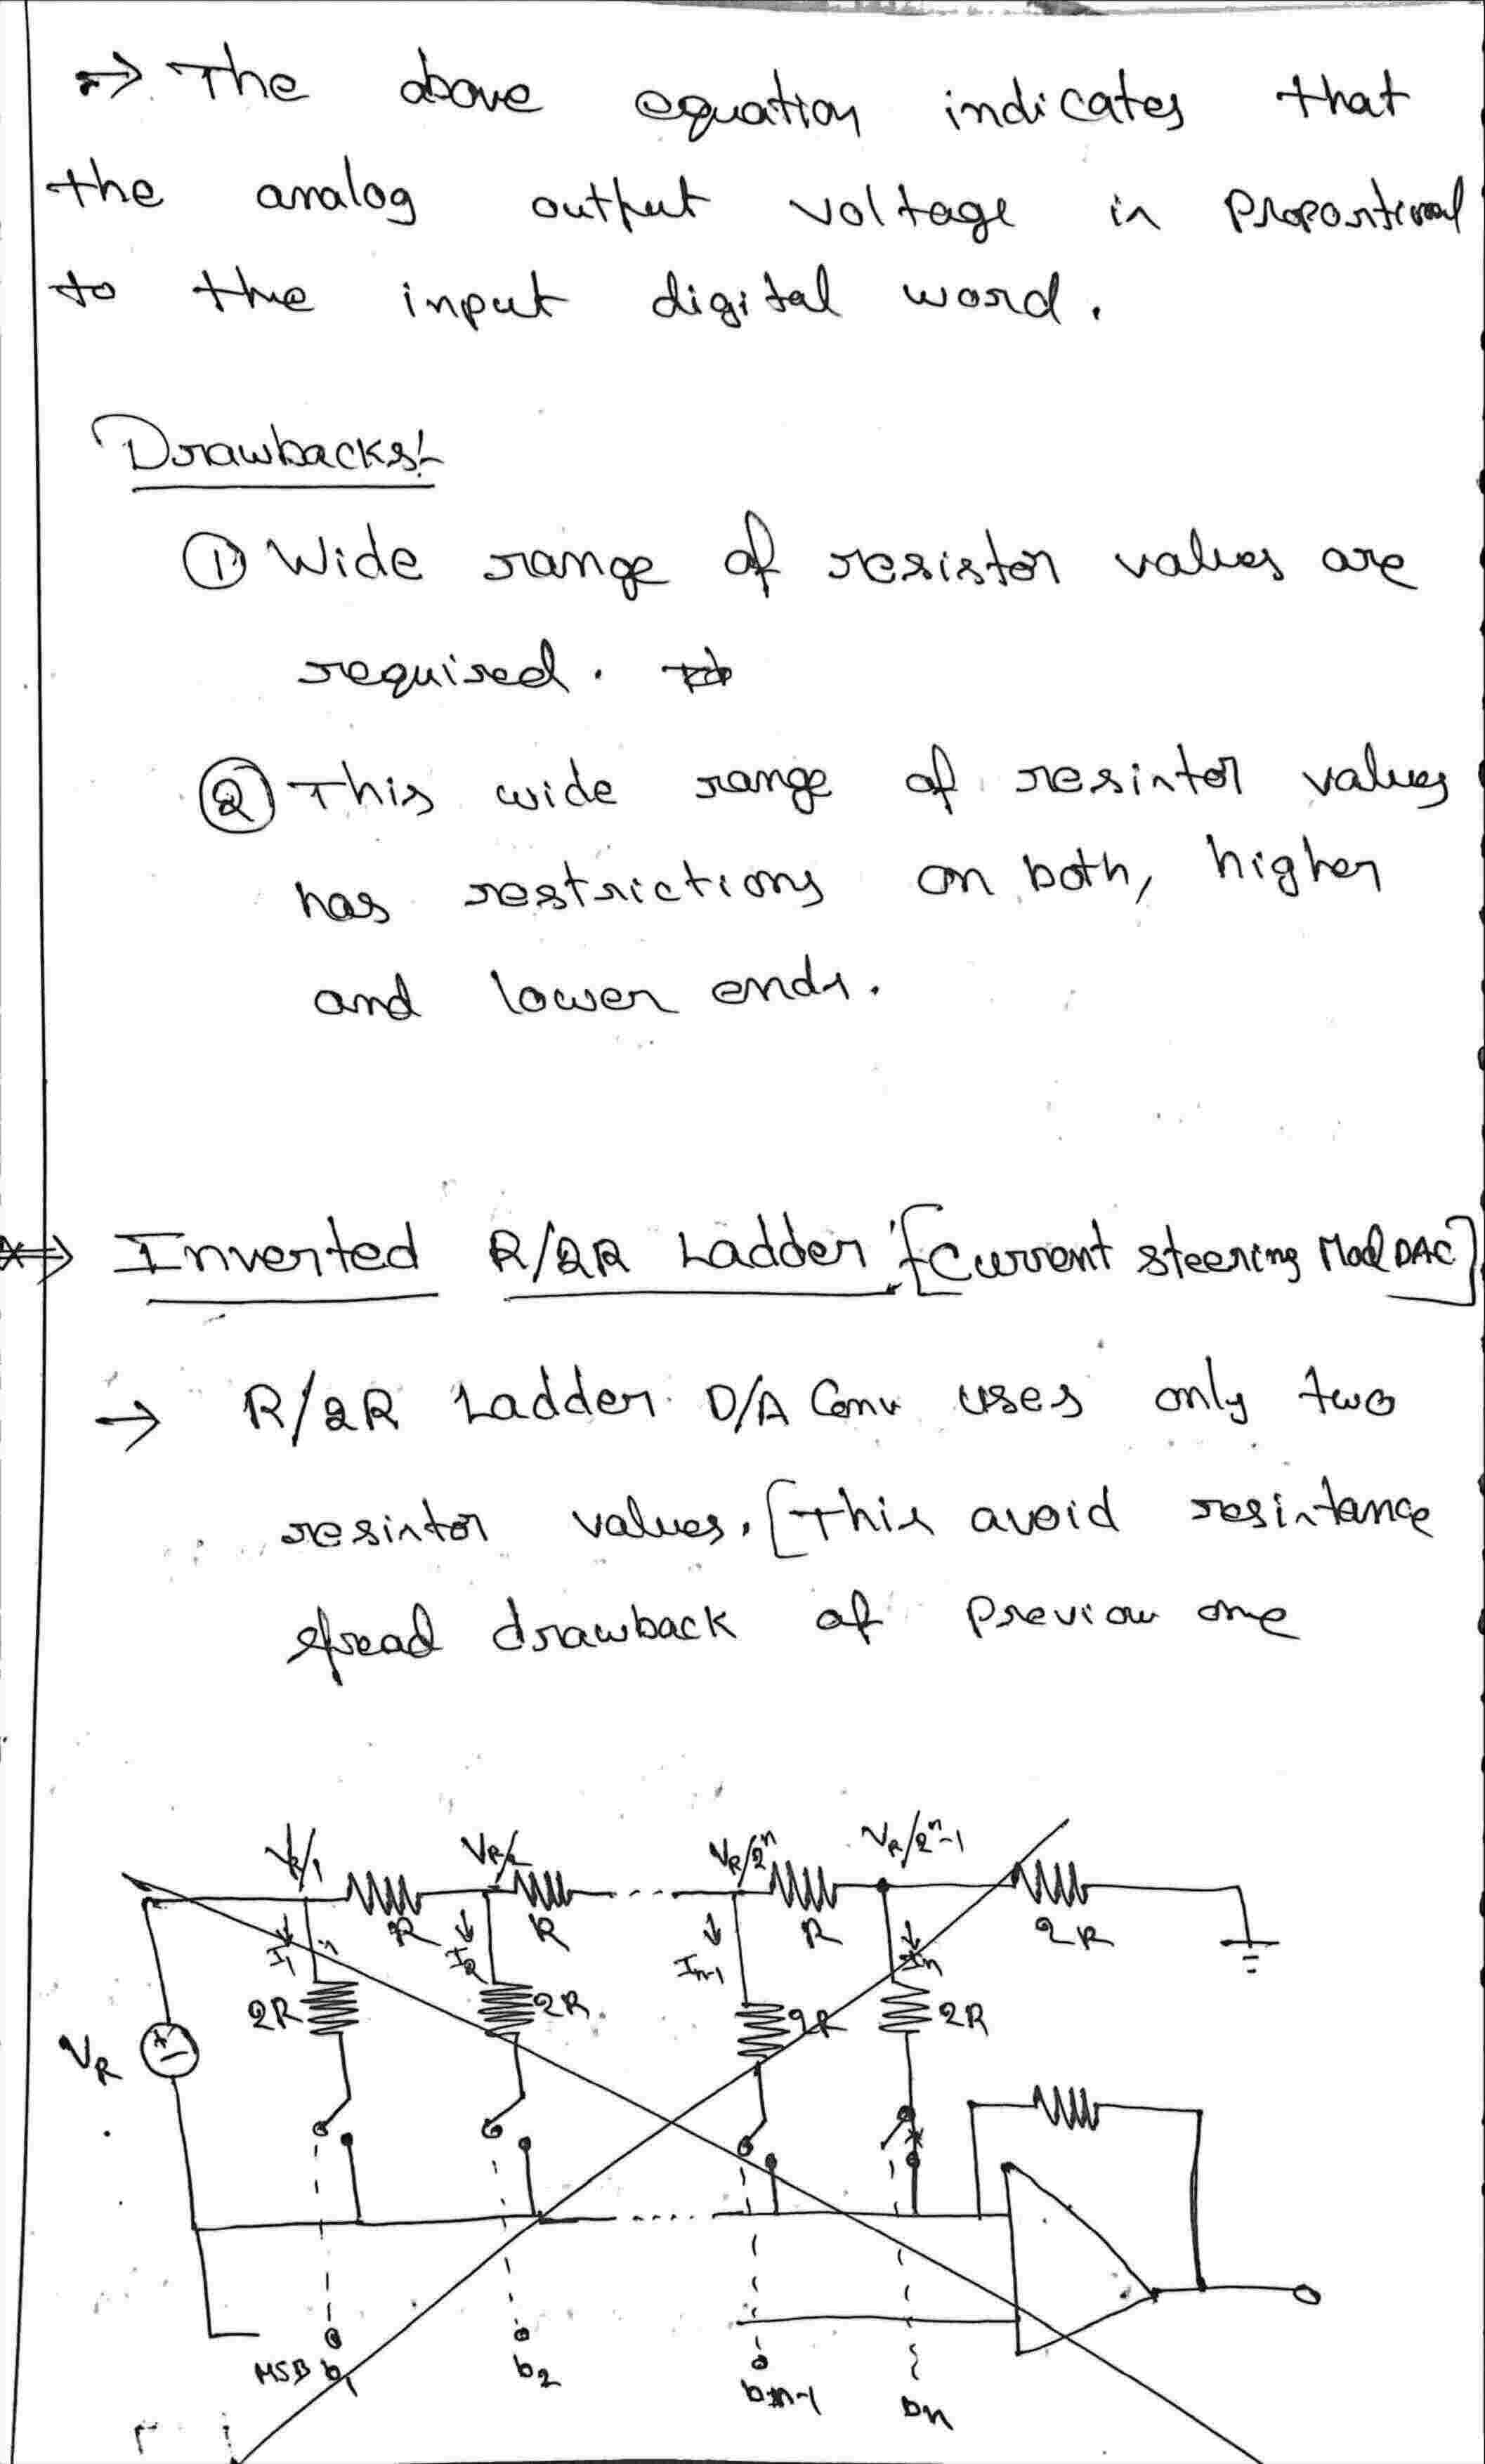 → The above equation indicates that
the analog output voltage is proportional
to the input digital word.
Drawbacks:-
① Wide range of resistor values are
required.
② This wide range of resistor values
has restrictions on both, higher
and lower ends.
⇒ Inverted R/2R Ladder :- [Current steering Mod DAC]
→ R/2R Ladder D/A Conv uses only two
resistor values. [This avoid resistance
spread drawback of previous one
VR/1 VR/2 VR/2^n VR/2^n-1
R R R 2R
I1 I2 In-1 In
2R 2R 2R 2R
VR
MSB b1 b2 bn-1 bn